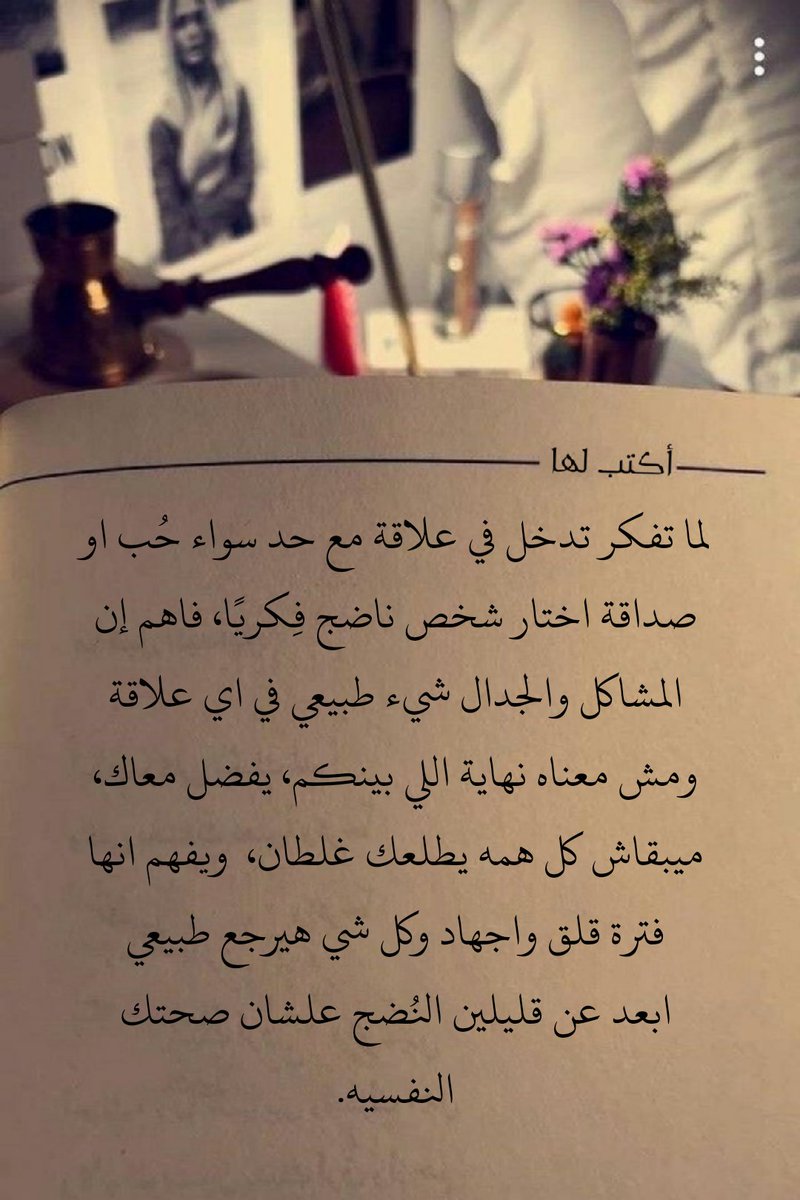 أكتب لها
لما تفكر تدخل في علاقة مع حد سواء حُب او
صداقة اختار شخص ناضج فِكريًا، فاهم إن
المشاكل والجدال شيء طبيعي في اي علاقة
ومش معناه نهاية اللي بينكم، يفضل معاك،
ميبقاش كل همه يطلعك غلطان، ويفهم انها
فترة قلق واجهاد وكل شي هيرجع طبيعي
ابعد عن قليلين النُضج علشان صحتك
النفسيه.